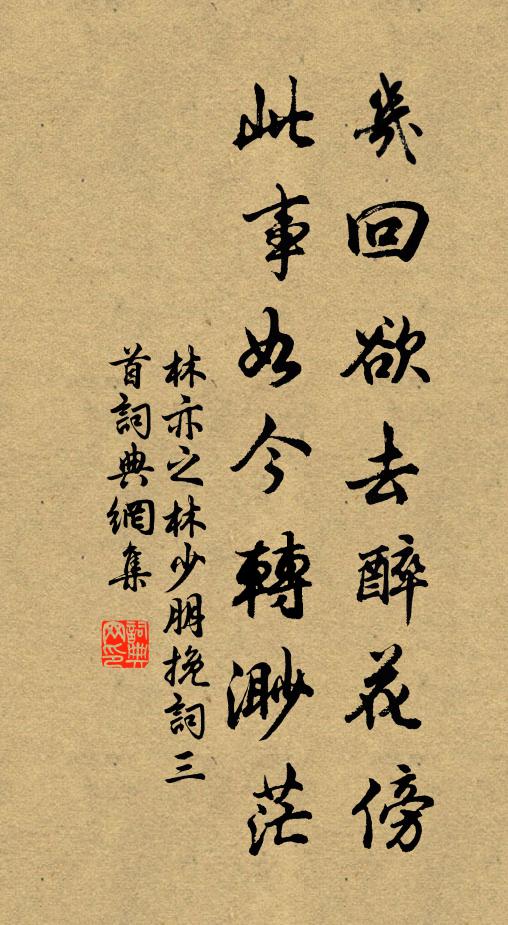 幾回欲去醉花傍
此事如今轉渺茫
林亦之林少朋挽詞三
首詞典網集
詞典
网印